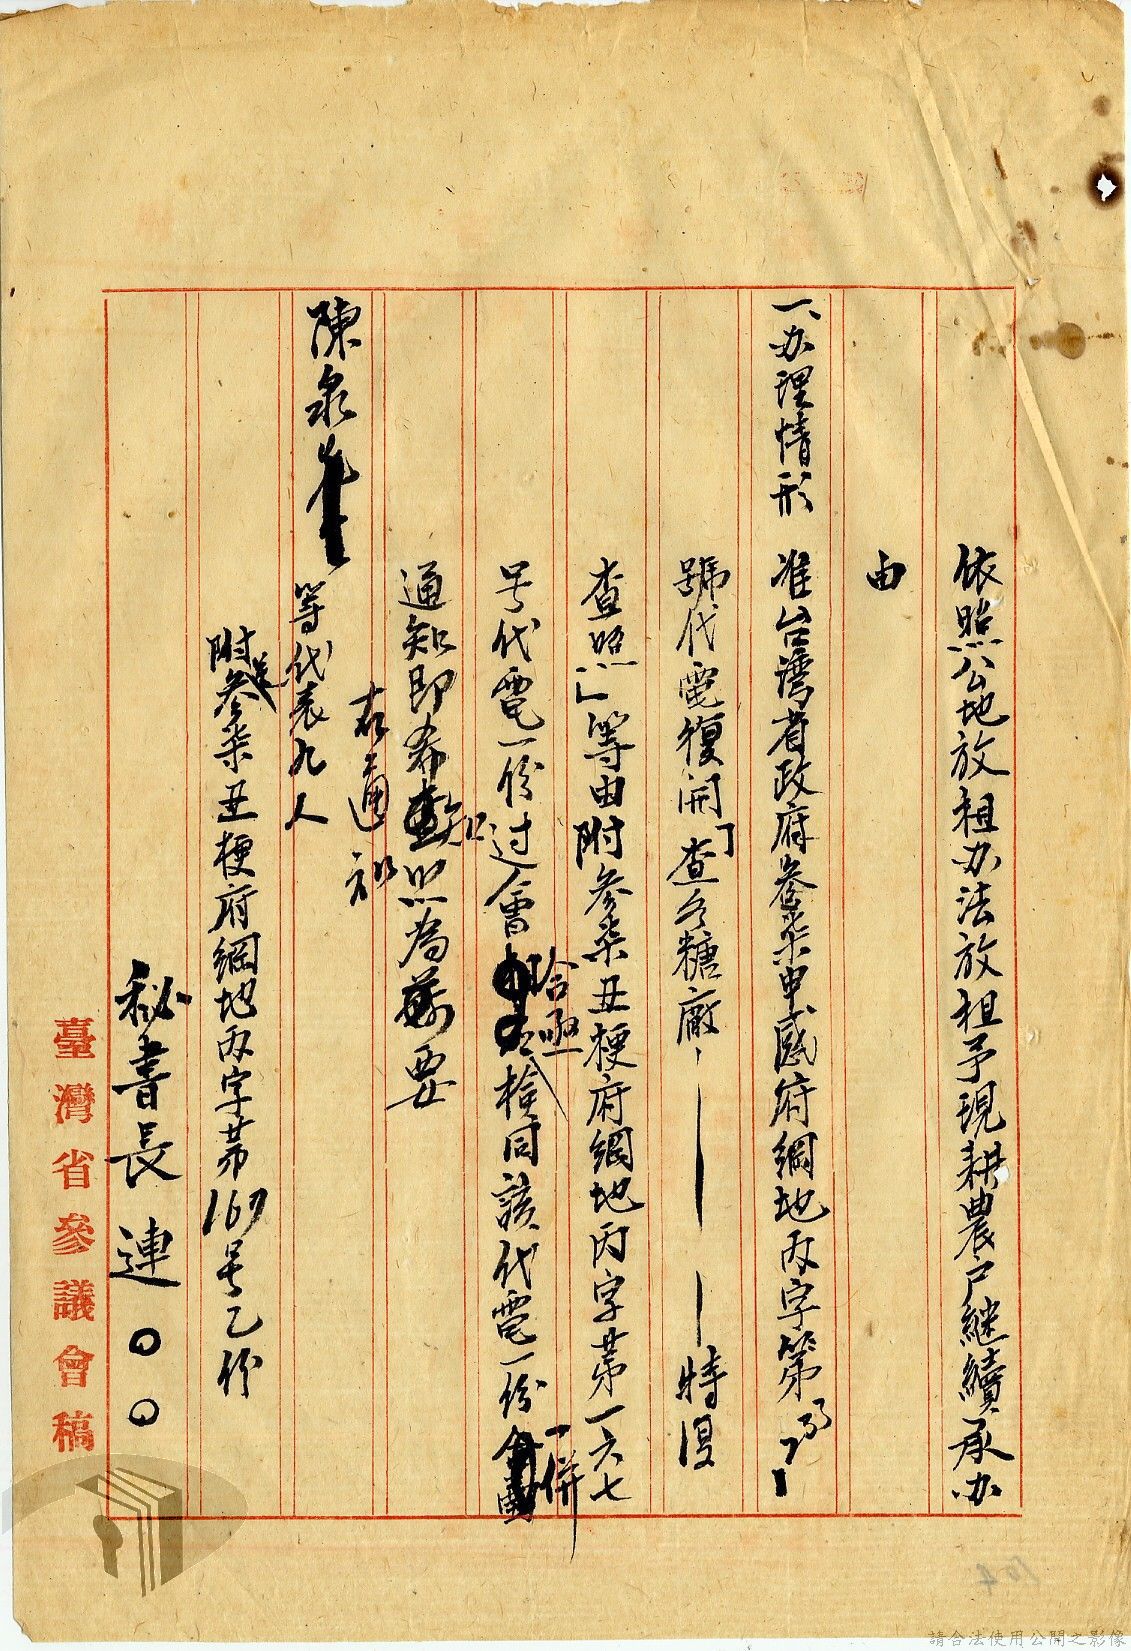 依照公地放租办法放租予現耕農戶継續承办
由
一、办理情形 准台灣省政府叁柒申感府綱地丙字第3371
號代電復開「查各糖廠、——— —特復
查照」等由附叁柒丑梗府綱地丙字苐一六七
号代電一份过會 檢同該代電一份一併
通知即希知照為要
右通知
陳泉 等代表九人
附送叁柒丑梗府綱地丙字苐167号乙份
秘書長 連○○
臺灣省參議會稿
請合法使用公開之影像